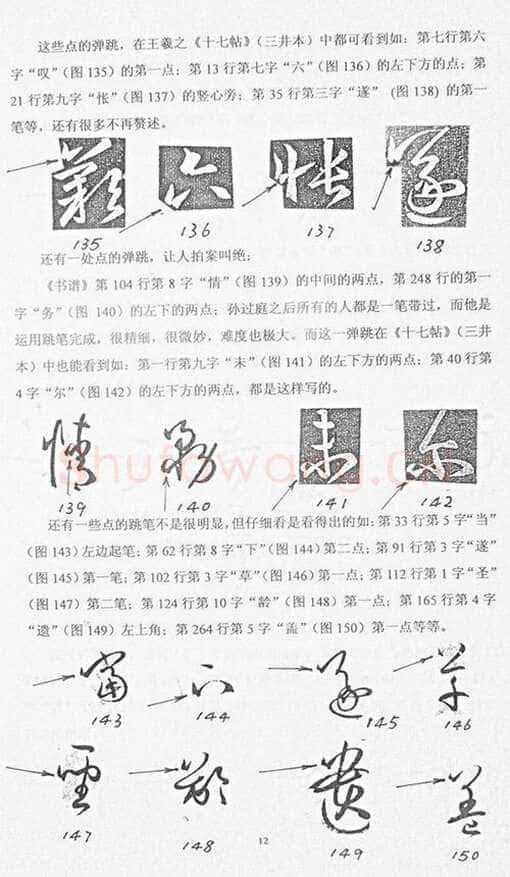 这些点的弹跳，在王羲之《十七帖》（三井本）中都可看到如：第七行第六
字“叹”（图 135）的第一点；第 13 行第七字“六”（图 136）的左下方的点；第
21 行第九字“怅”（图 137）的竖心旁；第 35 行第三字“遂”（图 138）的第一
笔等，还有很多不再赘述。
135 136 137 138
还有一处点的弹跳，让人拍案叫绝：
《书谱》第 104 行第 8 字“情”（图 139）的中间的两点，第 248 行的第一
字“务”（图 140）的左下的两点；孙过庭之后所有的人都是一笔带过，而他是
运用跳笔完成，很精细，很微妙，难度也极大。而这一弹跳在《十七帖》（三井
本）中也能看到如：第一行第九字“未”（图 141）的左下方的两点；第 40 行第
4 字“尔”（图 142）的左下方的两点，都是这样写的。
139 140 141 142
Shufawang.cn
还有一些点的跳笔不是很明显，但仔细看是看得出的如：第 33 行第 5 字“当”
（图 143）左边起笔；第 62 行第 8 字“下”（图 144）第二点；第 91 行第 3 字“遂”
（图 145）第一笔；第 102 行第 3 字“草”（图 146）第一点；第 112 行第 1 字“圣”
（图 147）第二笔；第 124 行第 10 字“龄”（图 148）第一点；第 165 行第 4 字
“遗”（图 149）左上角；第 264 行第 5 字“盖”（图 150）第一点等等。
143 144 145 146
147 148 149 150
12